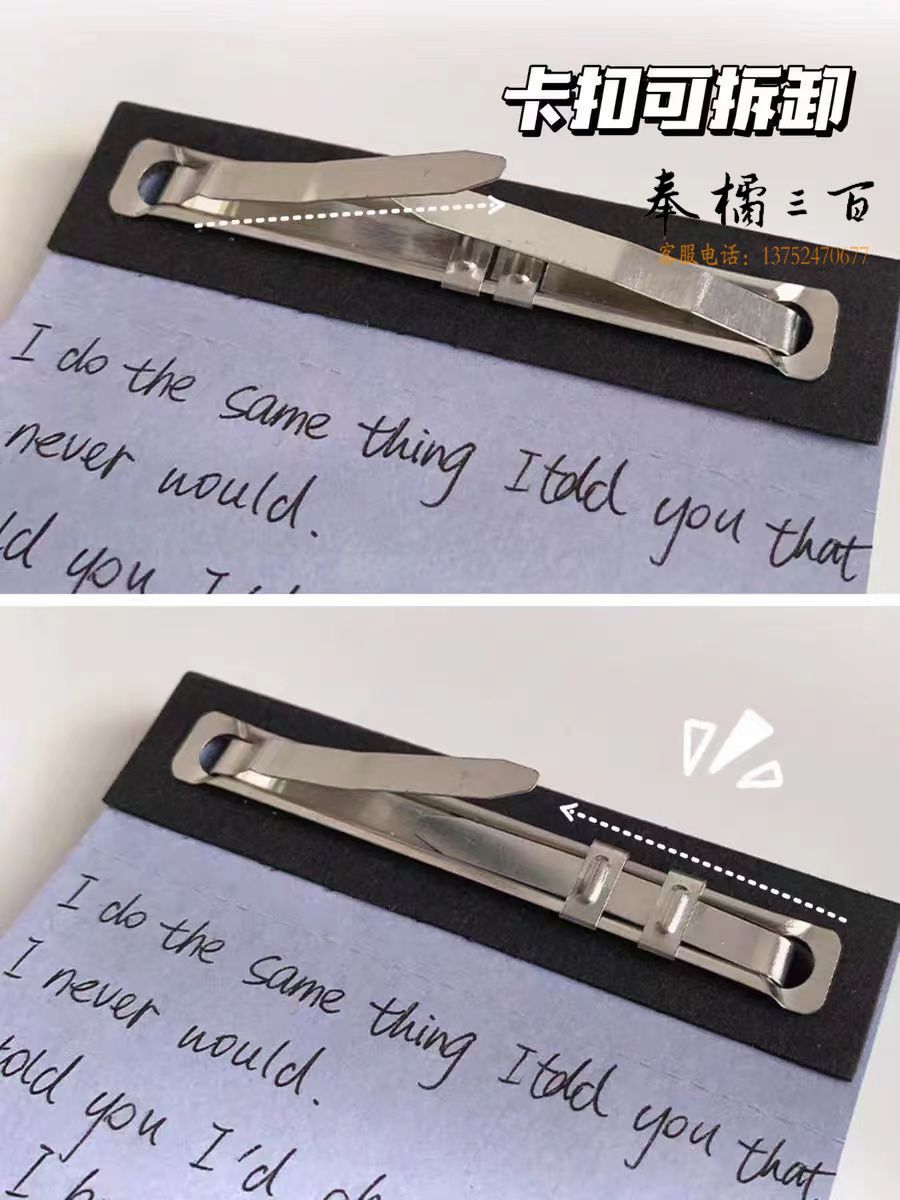 卡扣可拆卸
奉橘三百
客服电话：13752470677
I do the same thing I told you that
never would.
you
I do the same thing I told you that
I never would.
told you I'd
I